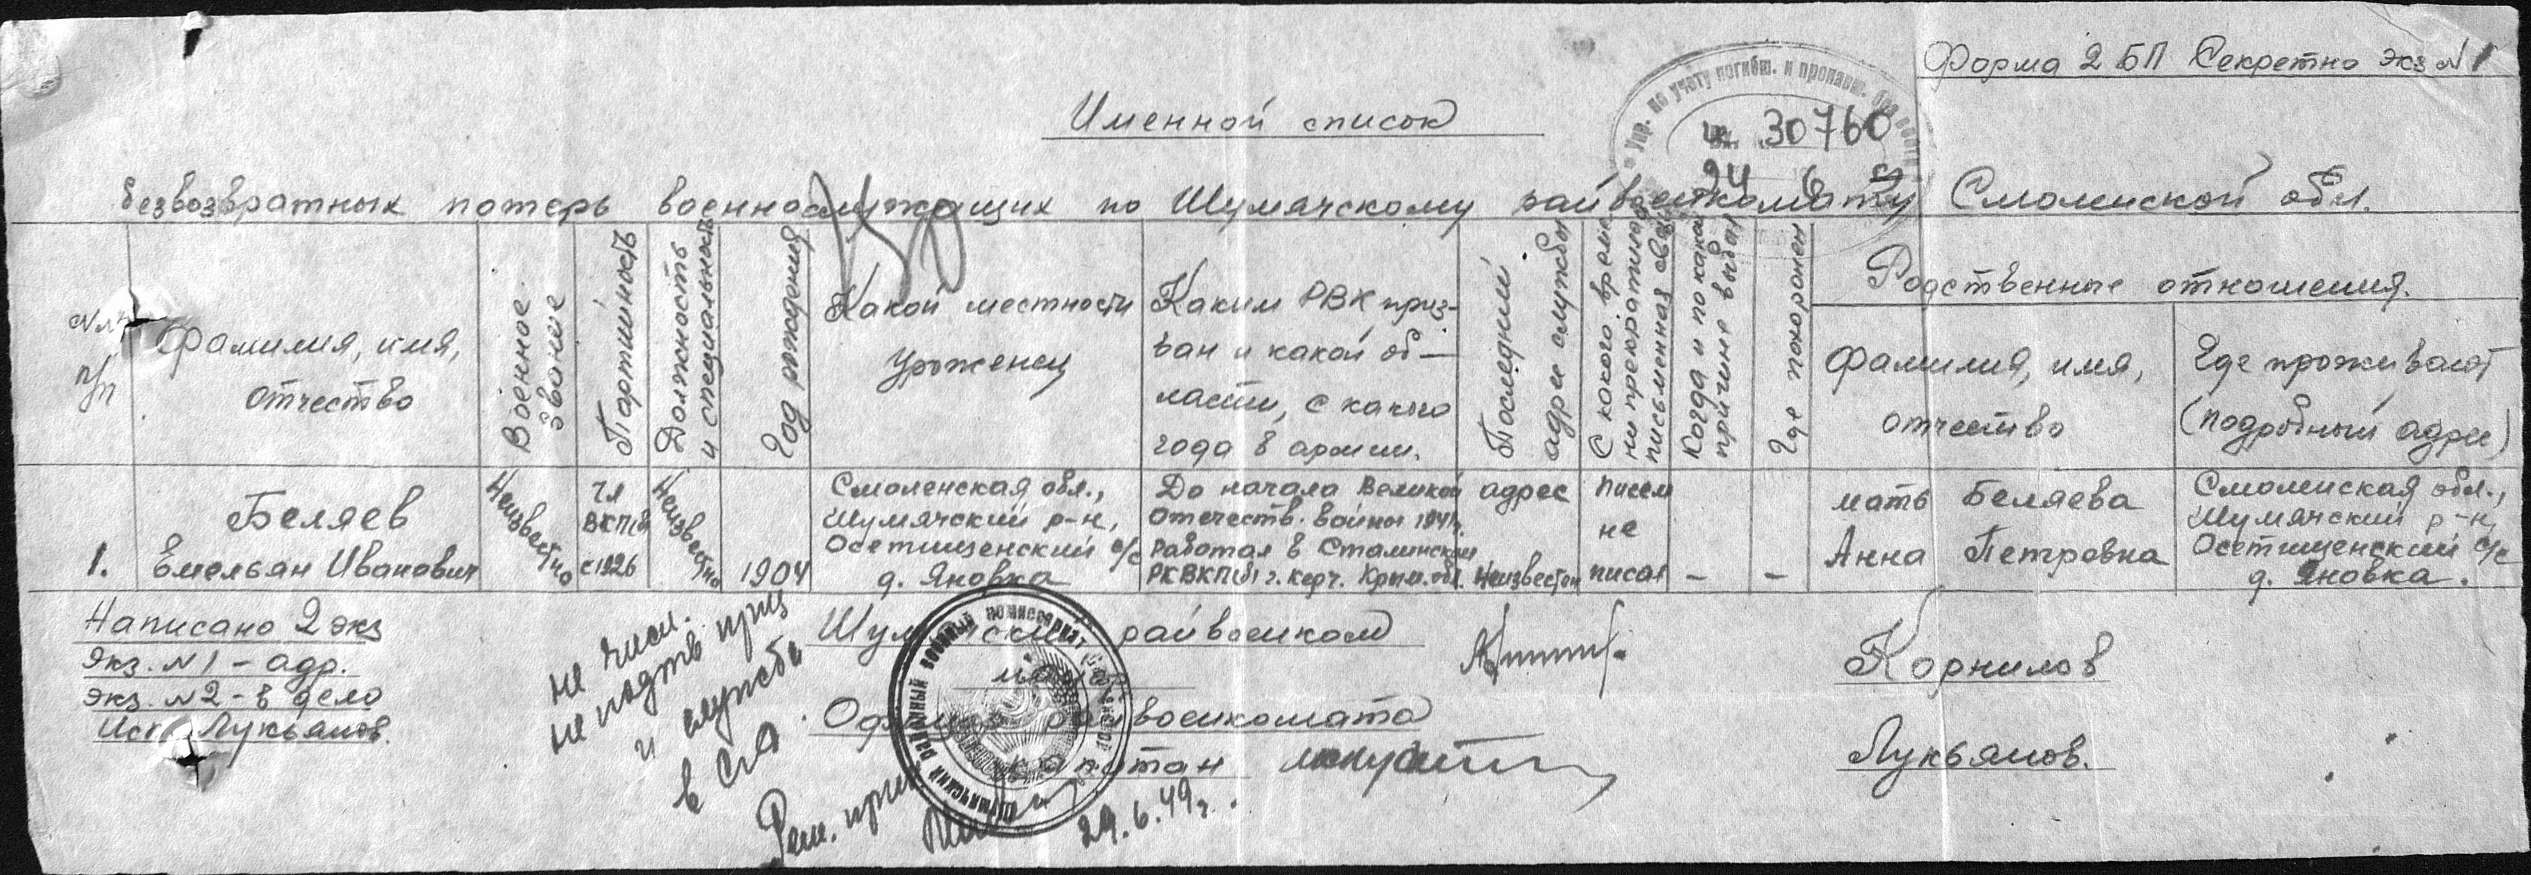 Форма 2 БП Секретно экз N 1
Упр. по учету погибш. и пропавш. без вести
вх. 30760
24 6
Именной список
безвозвратных потерь военнослужащих по Шумячскому райвоенкомату Смоленской обл.
п/п
Фамилия, имя,
отчество
Военное
звание
Партийность
Должность
и специальность
Год рождения
Какой местности
уроженец
Каким РВК приз-
ван и какой об-
ласти, с какого
года в армии.
Последний
адрес службы
С какого време-
ни прекратилась
письменная связь
Когда и по какой
причине выбыл
Где похоронен
Родственные отношения.
Фамилия, имя,
отчество
Где проживают
(подробный адрес)
1.
Беляев
Емельян Иванович
Неизвестно
чл
ВКП(б)
с 1926
Неизвестно
1904
Смоленская обл.,
Шумячский р-н,
Осетищенский с/с
д. Яновка
До начала Великой
Отечеств. войны 1941г.
работал в Сталинском
РК ВКП(б) г. Керч. Крым. обл.
адрес
Неизвестен
писем
не
писал
-
-
мать Беляева
Анна Петровна
Смоленская обл.,
Шумячский р-н,
Осетищенский с/с
д. Яновка.
Написано 2 экз
Экз. N 1 - адр.
Экз. N 2 - в дело
Исп. Лукьянов.
не числ.
не подтв приз
и службы
в СА
29.6.49г.
Шумячский райвоенком
Корнилов
райвоенкомата
капитан
Лукьянов.
Шумячский районный военный комиссариат Смоленской